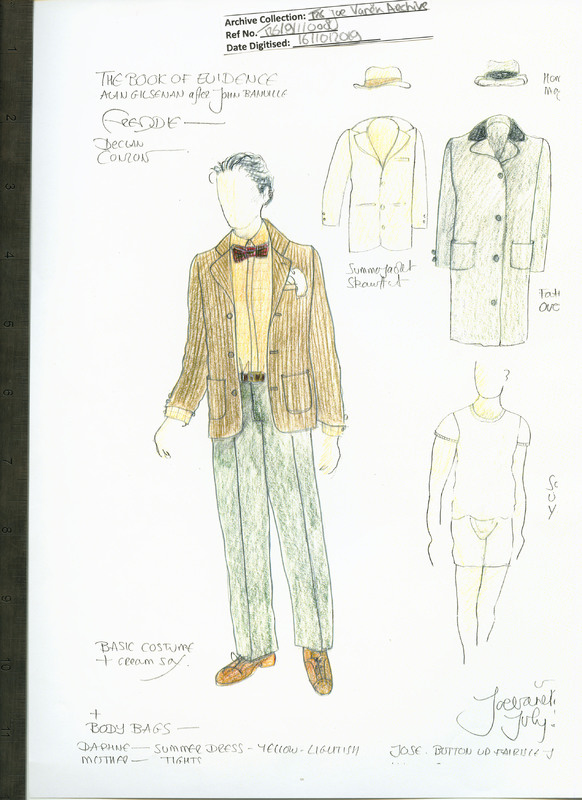 Archive Collection: The Joe Vaněk Archive
Ref No.
Date Digitised: 16/10/2019
THE BOOK OF EVIDENCE
ALAN GILSENAN after JOHN BANVILLE
FREDDIE —
DECLAN
CONLON —
Summer jacket
Straw Hat
BASIC COSTUME
+ cream
+
BODY BAGS —
DAPHNE — SUMMER DRESS - YELLOW - LIGHTISH
MOTHER — TIGHTS
JOSE. BUTTON UP
July